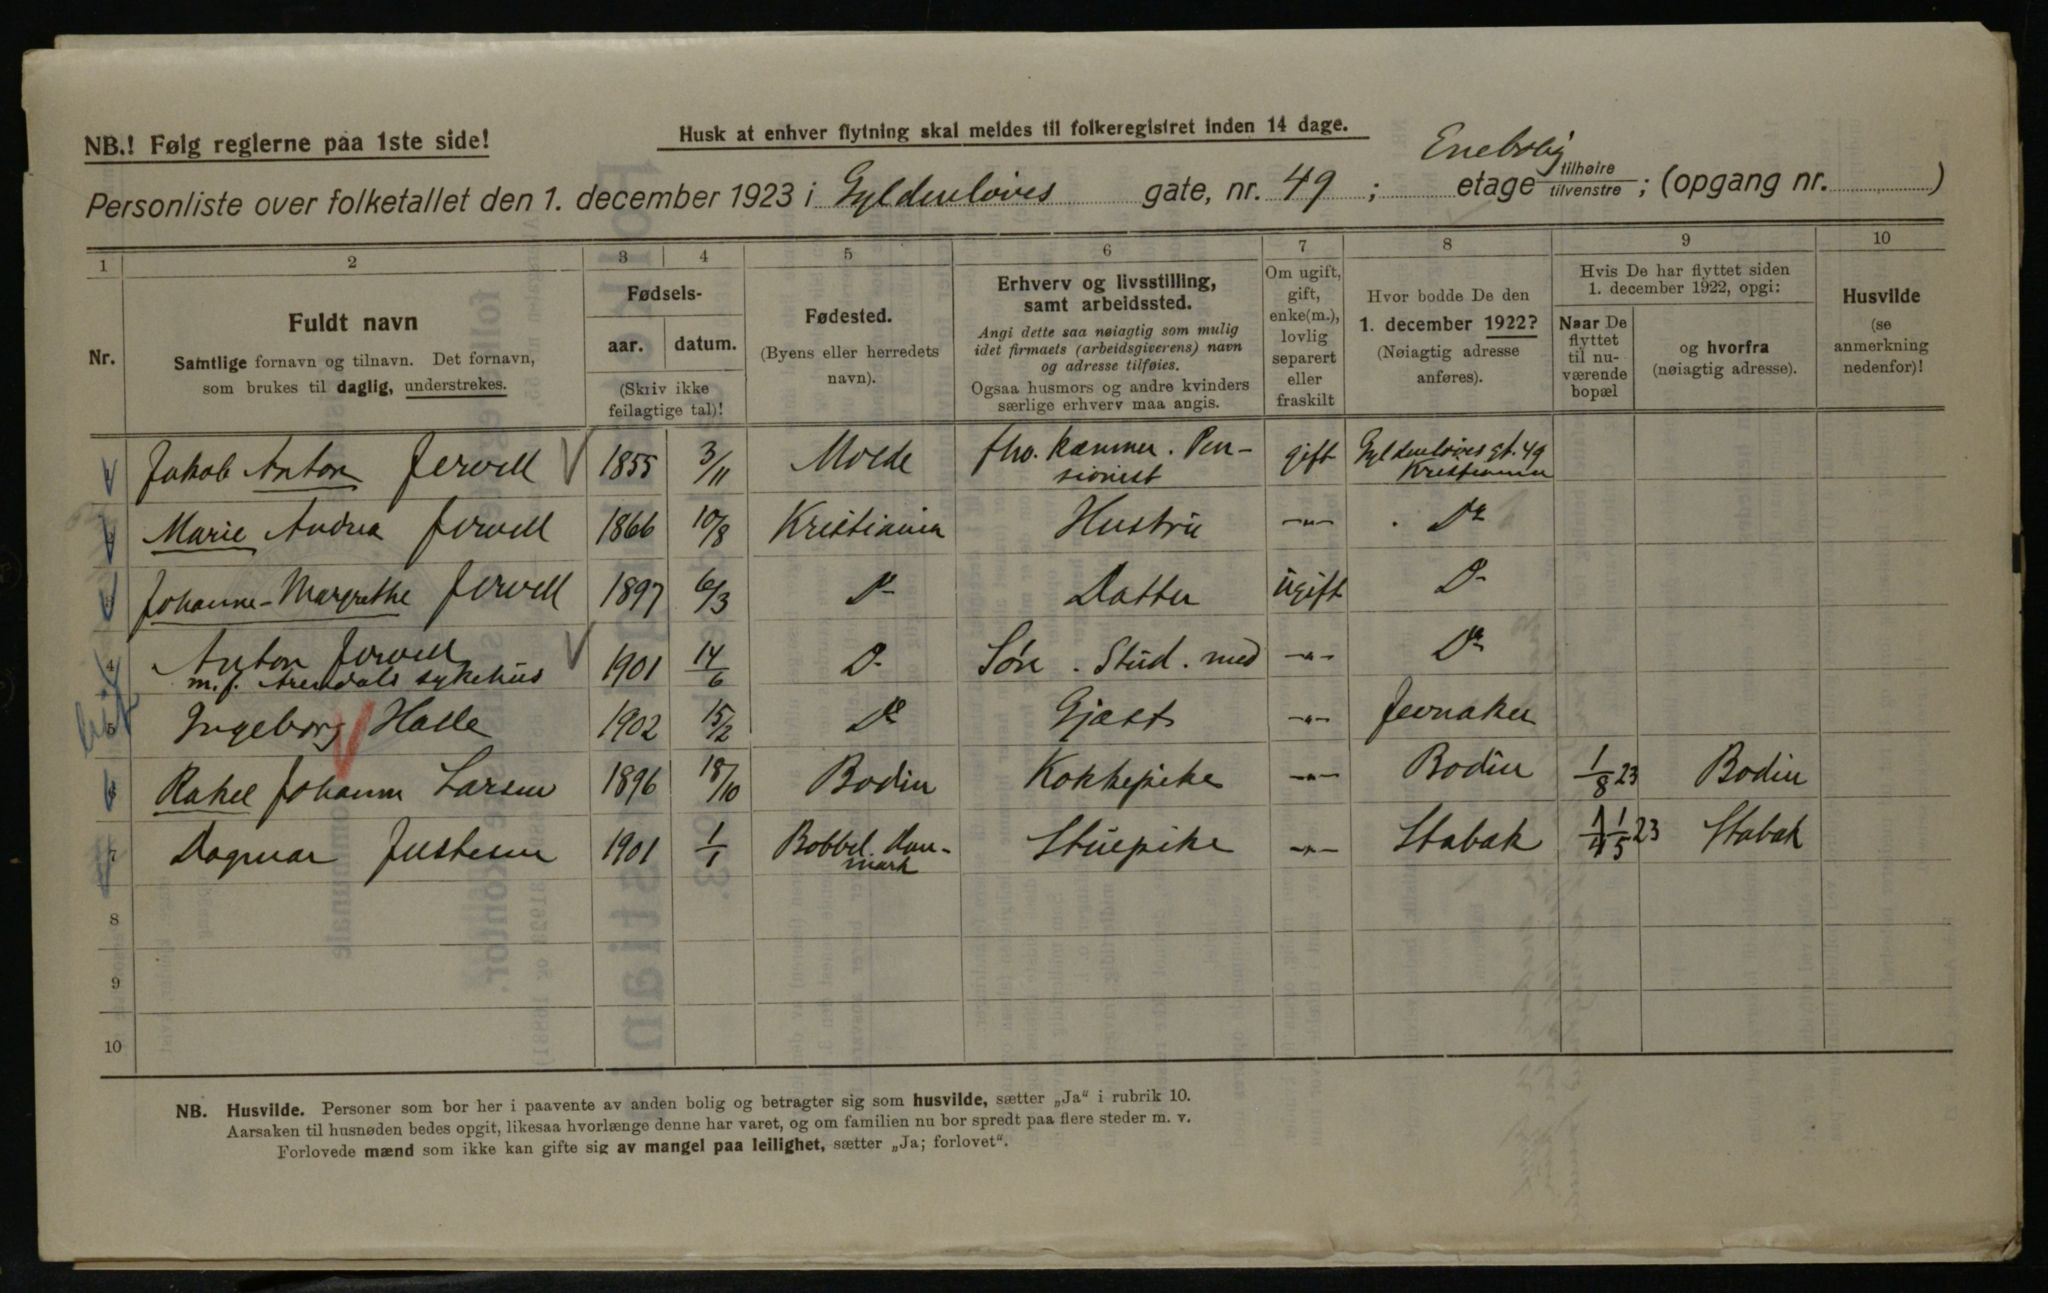 NB.! Følg reglerne paa 1ste side!
Husk at enhver flytning skal meldes til folkeregistret inden 14 dage.
Enebolig
Personliste over folketallet den 1. december 1923 i Gyldenløves gate, nr. 49; etage tilhøire / tilvenstre; (opgang nr. )
1 2 3 4 5 6 7 8 9 10
Nr.
Fuldt navn
Samtlige fornavn og tilnavn. Det fornavn,
som brukes til daglig, understrekes.
Fødsels-
aar. datum.
(Skriv ikke
feilagtige tal)!
Fødested.
(Byens eller herredets
navn).
Erhverv og livsstilling,
samt arbeidssted.
Angi dette saa nøiagtig som mulig
idet firmaets (arbeidsgiverens) navn
og adresse tilføies.
Ogsaa husmors og andre kvinders
særlige erhverv maa angis.
Om ugift,
gift,
enke(m.),
lovlig
separert
eller
fraskilt
Hvor bodde De den
1. december 1922?
(Nøiagtig adresse
anføres).
Hvis De har flyttet siden
1. december 1922, opgi:
Naar De
flyttet
til nu-
værende
bopæl
og hvorfra
(nøiagtig adresse).
Husvilde
(se
anmerkning
nedenfor)!
Jakob Anton Jervell 1855 3/11 Molde fhv. kæmner. Pen-
sionist gift Gyldenløves gt. 49
Kristiania
Marie Andrea Jervell 1866 10/8 Kristiania Hustru -"- Do
Johanne-Margrethe Jervell 1897 6/3 Do Datter ugift Do
4 Anton Jervell 1901 14/6 Do Søn. Stud. med -"- Do
m.f. Arendals sykehus
5 Ingeborg Halle 1902 15/2 Do Gjæst -"- Jevnaker
Rakel Johanne Larsen 1896 18/10 Bodin Kokkepike -"- Bodin 1/8 23 Bodin
7 Dagmar Justesen 1901 1/1 Dan-
mark Stuepike -"- Stabak 1/5 23 Stabak
8
9
10
NB. Husvilde. Personer som bor her i paavente av anden bolig og betragter sig som husvilde, sætter „Ja“ i rubrik 10.
Aarsaken til husnøden bedes opgit, likesaa hvorlænge denne har varet, og om familien nu bor spredt paa flere steder m. v.
Forlovede mænd som ikke kan gifte sig av mangel paa leilighet, sætter „Ja; forlovet“.